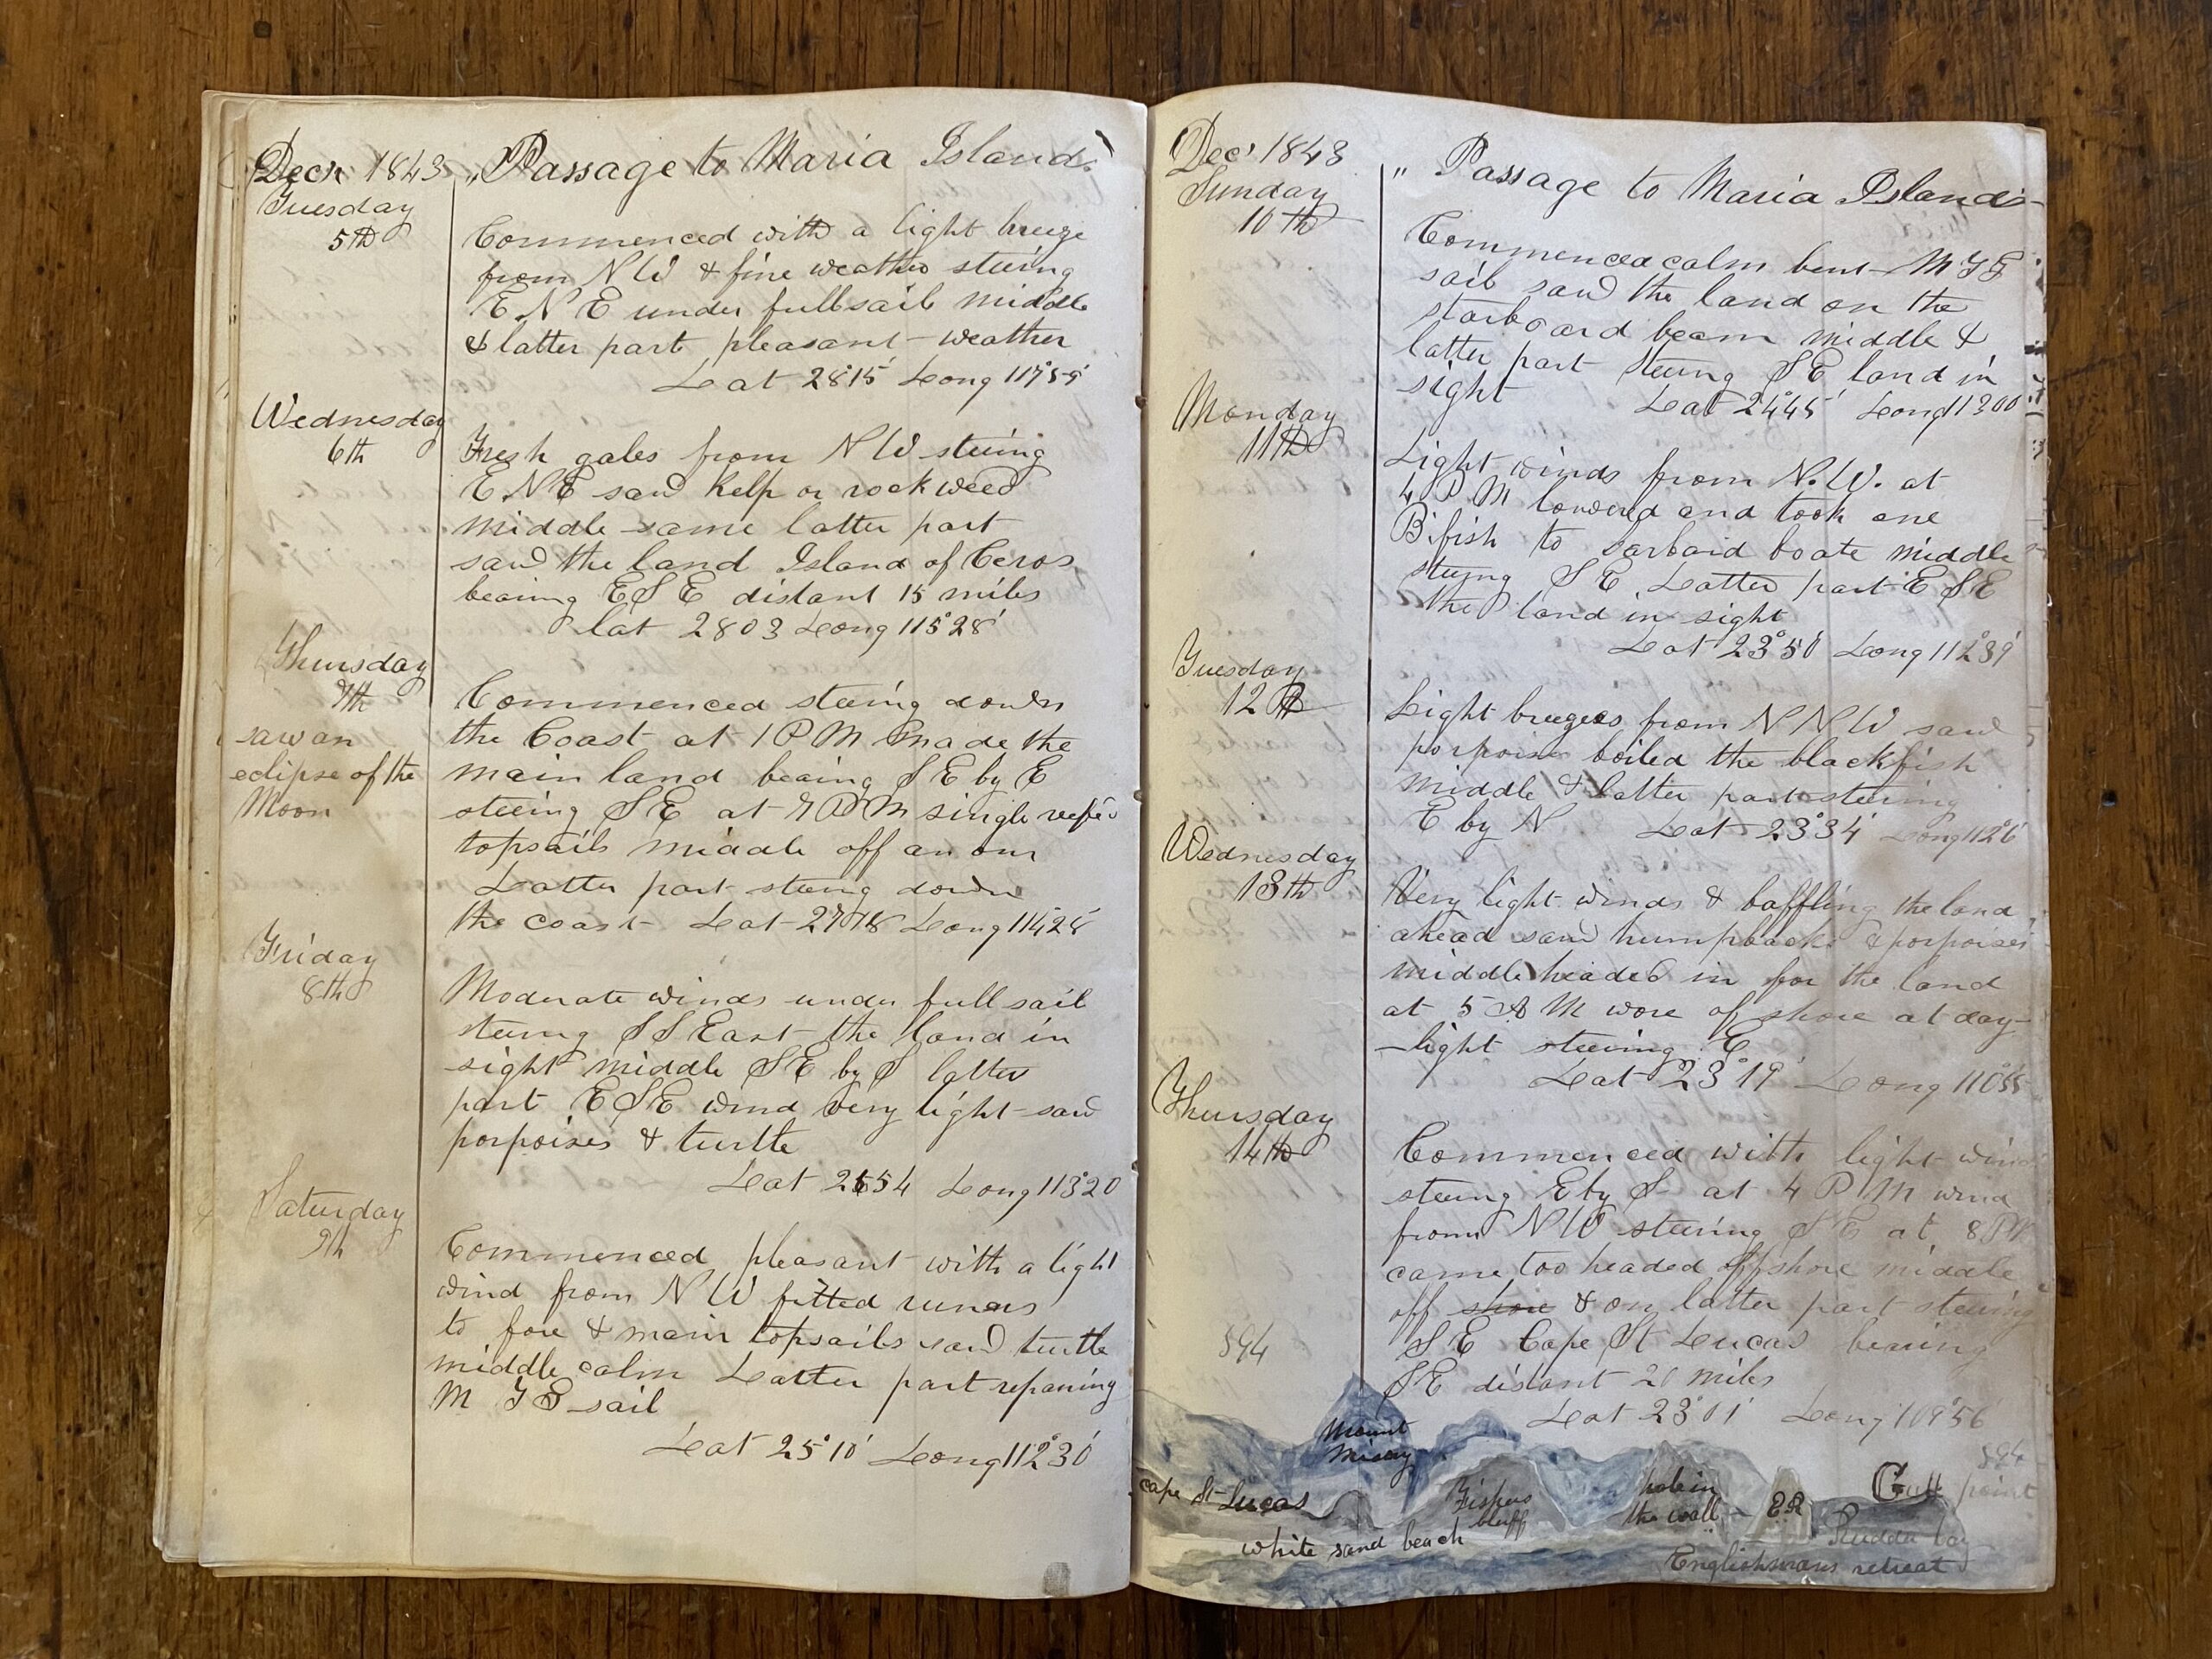 Decr 1843 " Passage to Maria Islands
Tuesday
5th
Commenced with a light breeze
from N W & fine weather steering
E N E under full sail middle
& latter part pleasant weather
Lat 28°15' Long 117°55'
Wednesday
6th
Fresh gales from N W steering
E N E saw kelp or rock weed
middle same latter part
saw the land Island of Ceros
bearing E S E distant 15 miles
lat 28 03 Long 115°28'
Thursday
7th
saw an
eclipse of the
Moon
Commenced steering down
the Coast at 1 P M made the
main land bearing S E by E
steering S E at 7 P M single reefed
topsails middle off an on
Latter part steering down
the coast Lat 27°18 Long 114°28'
Friday
8th
Moderate winds under full sail
steering S S East the land in
sight middle S E by S latter
part E S E wind very light saw
porpoises & turtle
Lat 26 54 Long 113°20
Saturday
9th
Commenced pleasant with a light
wind from N W fitted runers
to fore & main topsails saw turtle
middle calm Latter part repairing
M T G sail
Lat 25°10' Long 112°30'
Decr 1843 " Passage to Maria Islands
Sunday
10th
Commenced calm bent M T G
sail saw the land on the
starboard beam middle &
latter part steering S E land in
sight Lat 24°45' Long 113 00
Monday
11th
Light winds from N. W. at
4 P M lowered and took one
B. fish to boate middle
steering S E Latter part E S E
the land in sight
Lat 23°50' Long 112°39'
Tuesday
12th
Light breezes from N N W saw
porpoise boiled the blackfish
middle & latter part steering
E by N Lat 23°34' Long 112°6'
Wednesday
13th
Very light winds & baffling the land
ahead saw humpbacks & porpoises
middle headed in for the land
at 5 A M wore of shore at day-
-light steering E
Lat 23°19' Long 110°55
Thursday
14th
Commenced with light wind
steering E by S at 4 P M wind
from N W steering S E at 8 PM
came too headed offshore middle
off shore & on latter part steering
S E Cape St Lucas bearing
S E distant 20 miles
594
Lat 23°01' Long 109°56'
594
Mount
Misery
Cape St Lucas
Fishers
bluff
hole in
the wall
E.R
Gull point
white sand beach
Rudder bay
Englishmans retreat